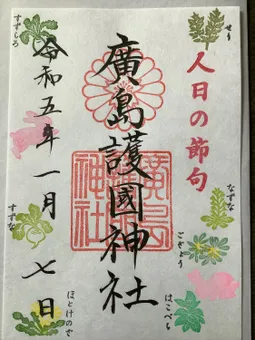 せり
人日の節句
なずな
ごぎょう
はこべら
廣島護國神社
廣島
神社
すずしろ
令和五年一月七日
すずな
ほとけのざ